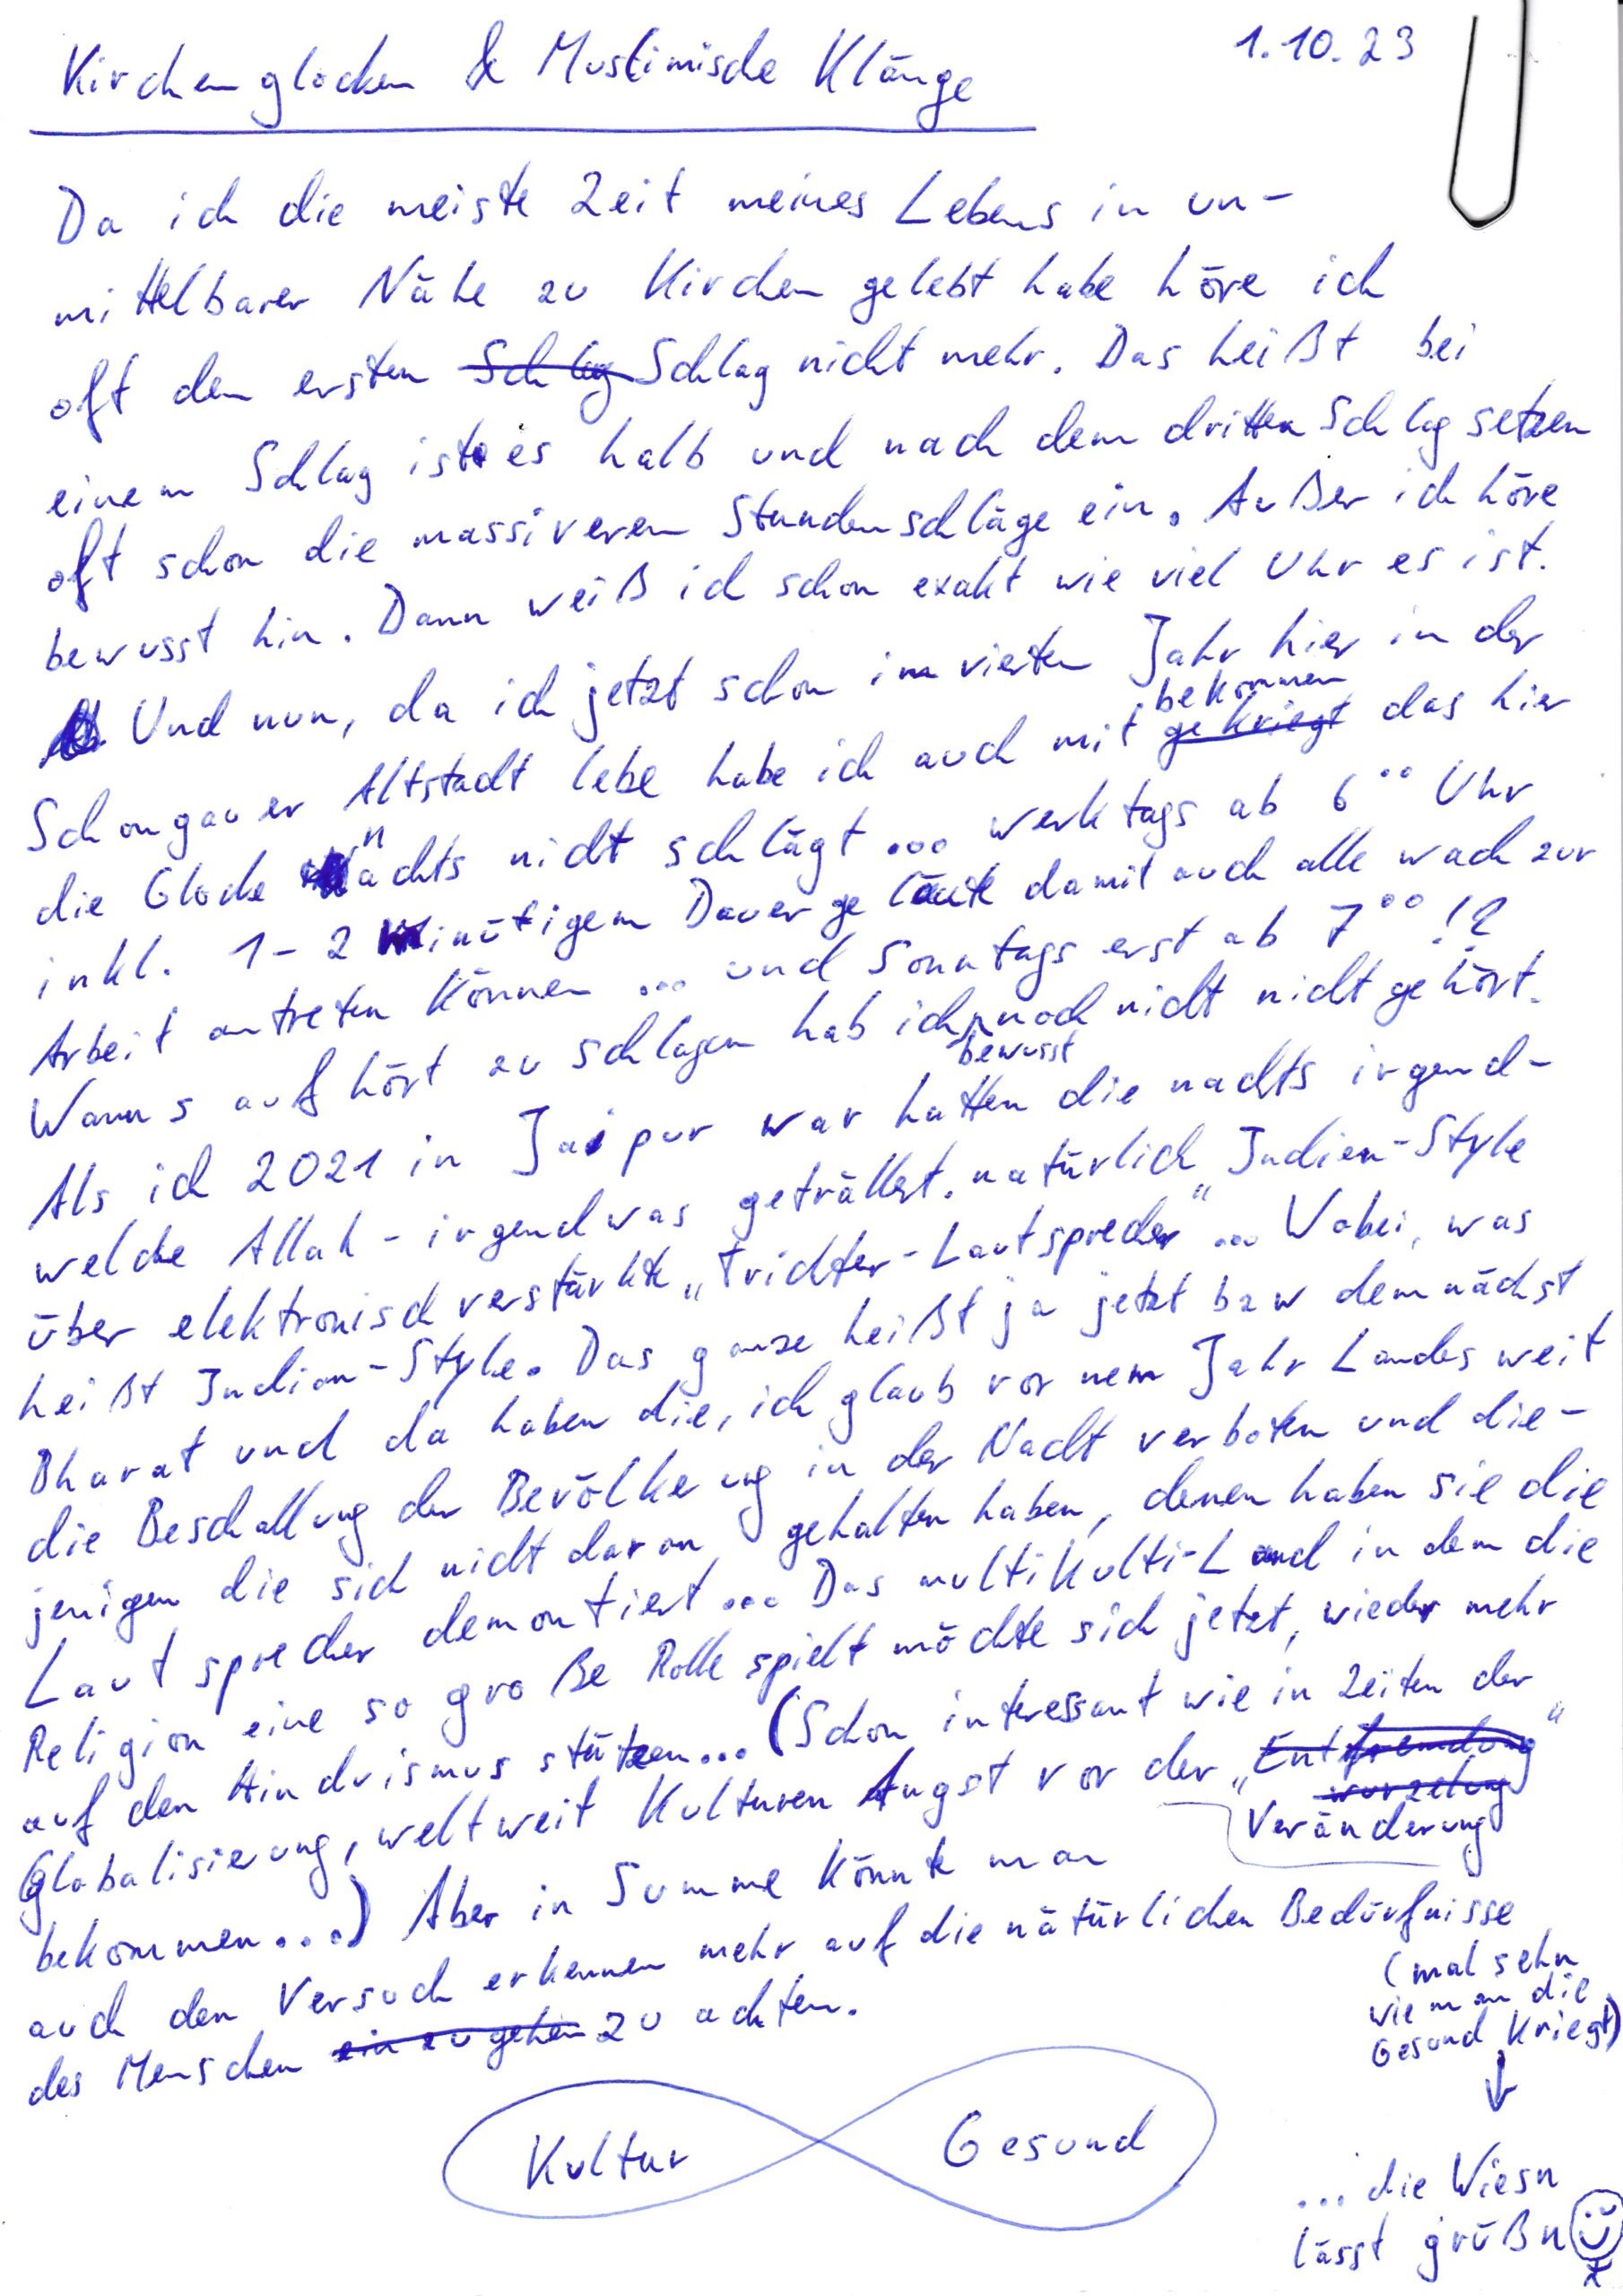 Kirchenglocken & Muslimische Klänge
1.10.23
Da ich die meiste Zeit meines Lebens in un-
mittelbarer Nähe zu Kirchen gelebt habe höre ich
oft den ersten Schlag Schlag nicht mehr. Das heißt bei
einem Schlag ist es halb und nach dem dritten Schlag setzen
oft schon die massiveren Stundenschläge ein. Außer ich höre
bewusst hin. Dann weiß ich schon exakt wie viel Uhr es ist.
Und nun, da ich jetzt schon im vierten Jahr hier in der
bekommen
Schongauer Altstadt lebe habe ich auch mit gekriegt das hier
die Glocke nachts nicht schlägt ... werktags ab 6°° Uhr
inkl. 1-2 Minütigem Dauergeläute damit auch alle wach zur
Arbeit antreten können ... und Sonntags erst ab 7°° !?
Wann s aufhört zu schlagen hab ich noch nicht nicht gehört.
bewusst
Als ich 2021 in Jaipur war hatten die nachts irgend-
welche Allah-irgendwas geträllert. natürlich „Indien-Style"
über elektronisch verstärkte „Trichter-Lautsprecher" ... Wobei, was
heißt Indian-Style. Das ganze heißt ja jetzt bzw demnächst
Bharat und da haben die, ich glaub vor nem Jahr Landesweit
die Beschallung der Bevölkerung in der Nacht verboten und die-
jenigen die sich nicht daran gehalten haben, denen haben sie die
Lautsprecher demontiert ... Das multikulti-Land in dem die
Religion eine so große Rolle spielt möchte sich jetzt, wieder mehr
auf den Hinduismus stützen... (Schon interessant wie in Zeiten der
Globalisierung, weltweit Kulturen Angst vor der „Entfremdung"
wurzelung
Veränderung
bekommen...) Aber in Summe könnte man
auch den Versuch erkennen mehr auf die natürlichen Bedürfnisse
des Menschen einzugehen zu achten.
(mal sehn
wie man die
Gesund kriegt)
↓
Kultur
Gesund
... die Wiesn
lässt grüßn